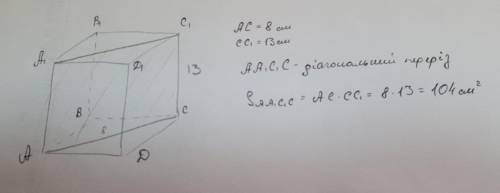 B₁
C₁
A₁
D₁
13
B
C
A
D
AC = 8 см
CC₁ = 13 см
AA₁C₁C - діагональний переріз
SAA₁C₁C = AC · CC₁ = 8 · 13 = 104 см²